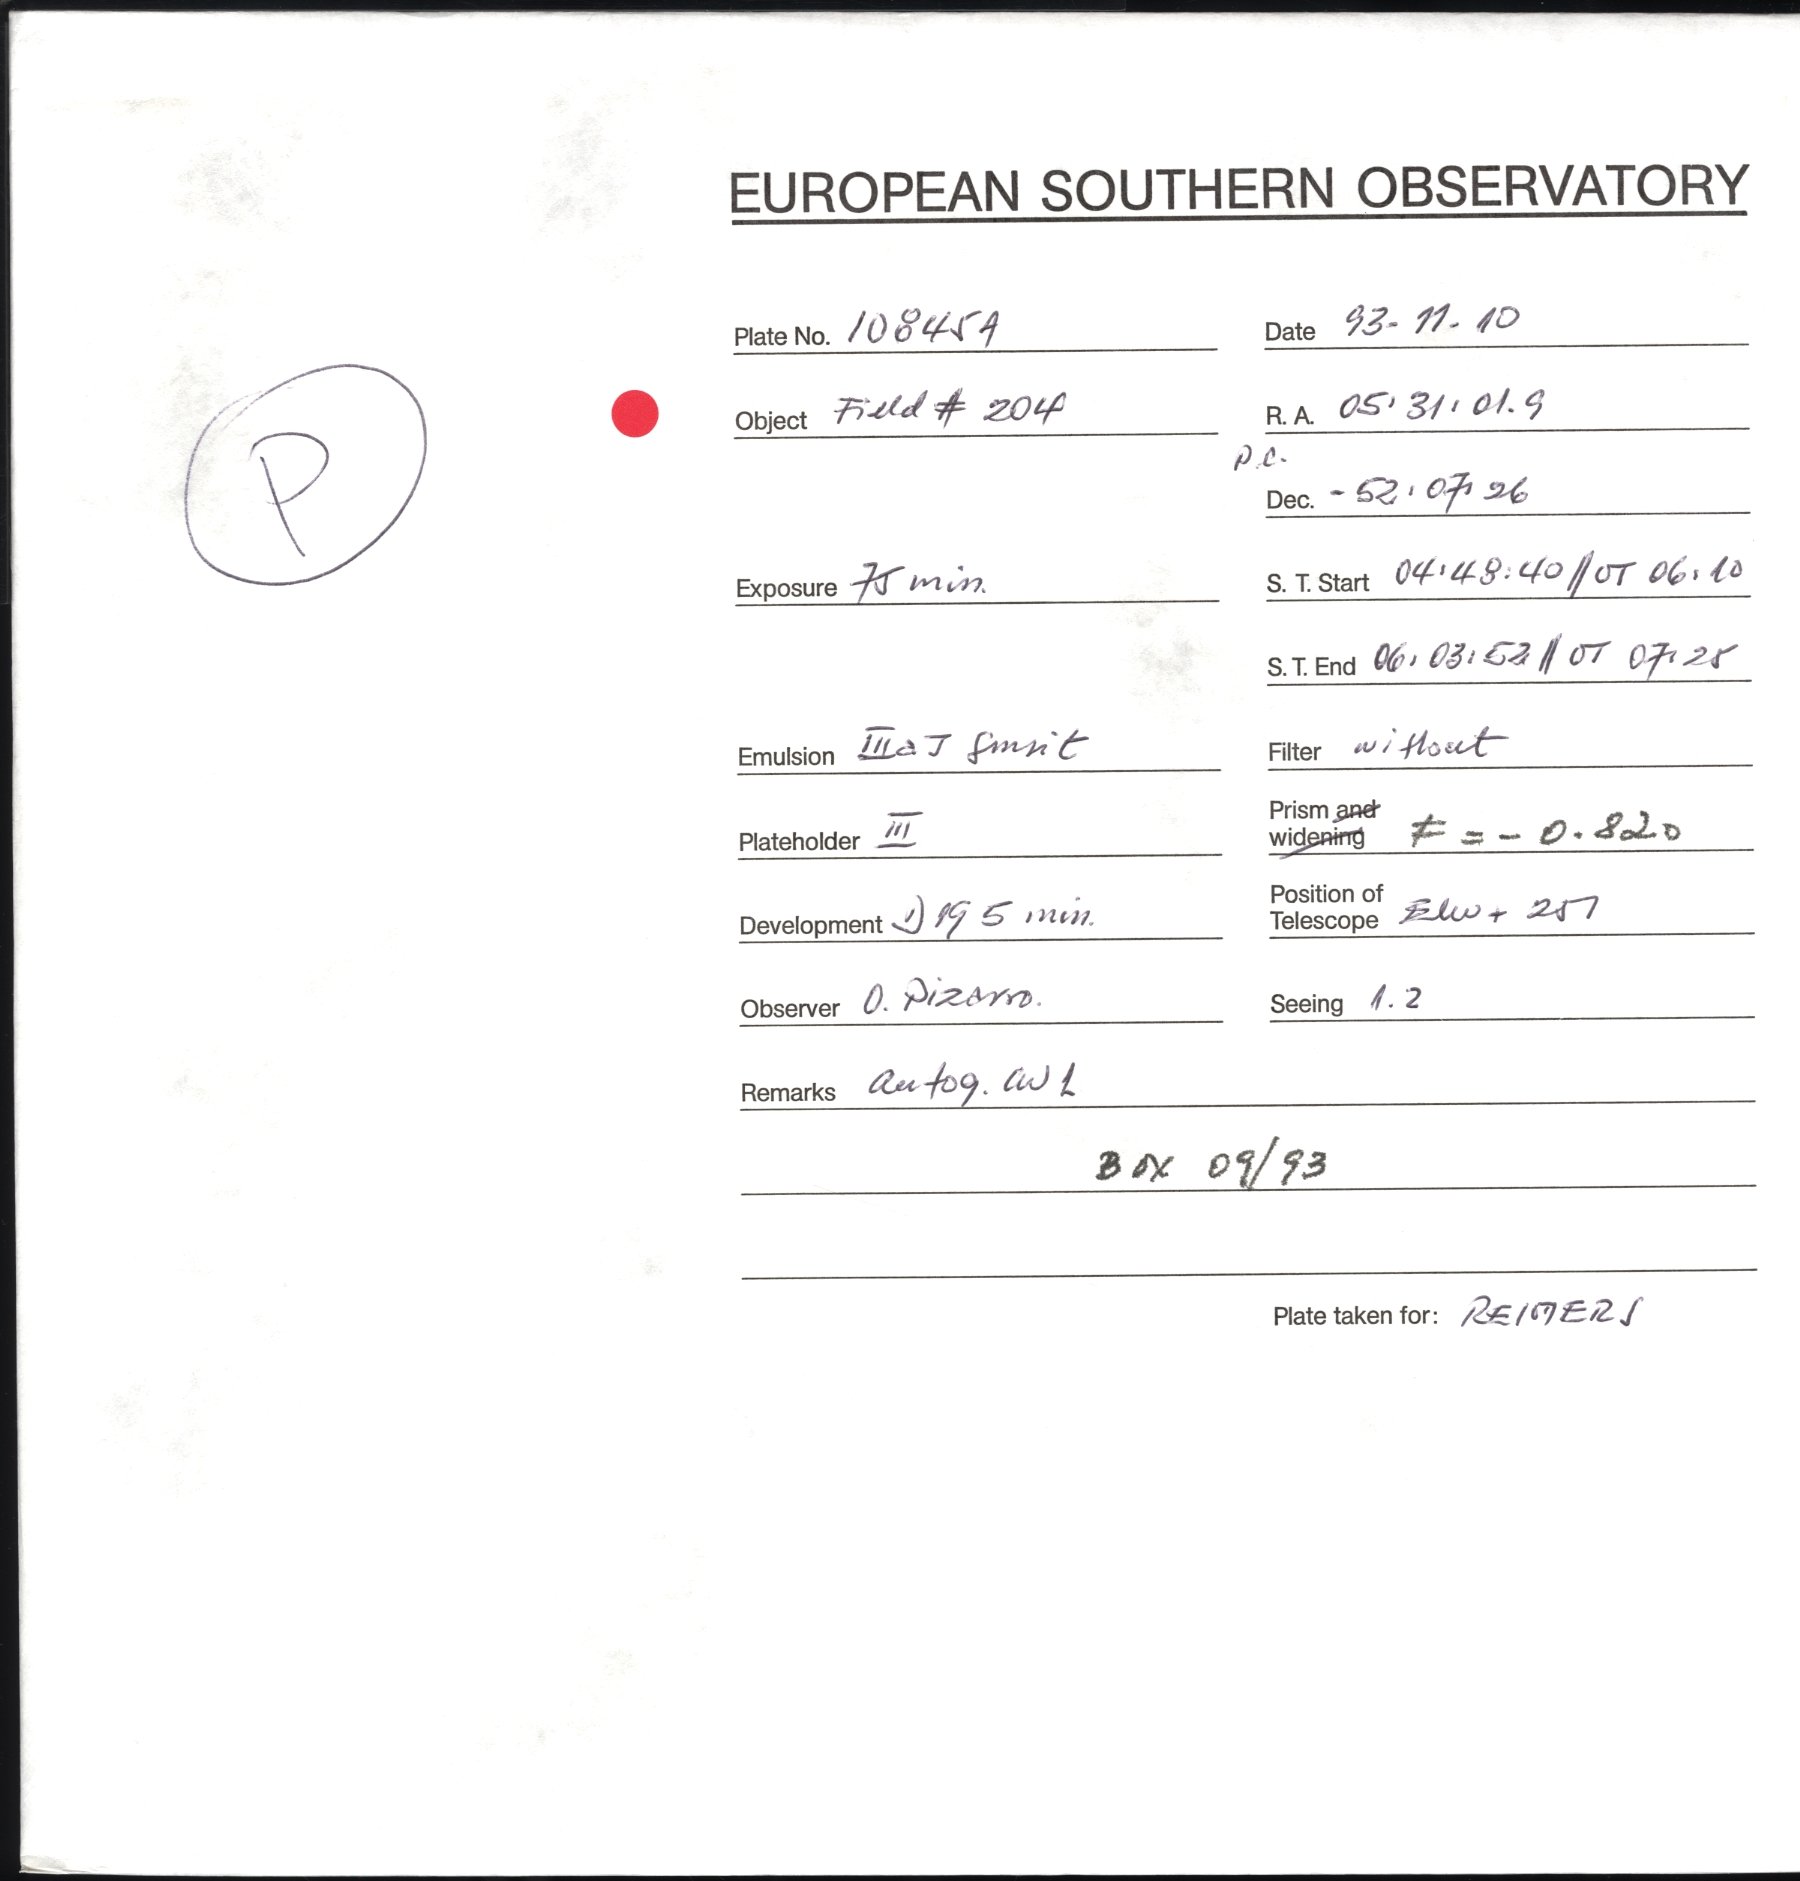 EUROPEAN SOUTHERN OBSERVATORY
Plate No. 10845A Date 93-11-10
P
Object Field # 204 R. A. 05:31:01.9
P.C.
Dec. -52:07:26
Exposure 75 min. S. T. Start 04:48:40 // UT 06:10
S. T. End 06:03:52 // UT 07:25
Emulsion IIIaJ Filter without
Plateholder III Prism and widening F = - 0.820
Development 1) 19 5 min. Position of Telescope + 257
Observer O. Pizarro. Seeing 1.2
Remarks Autog.
BOX 09/93
Plate taken for: REIMERS